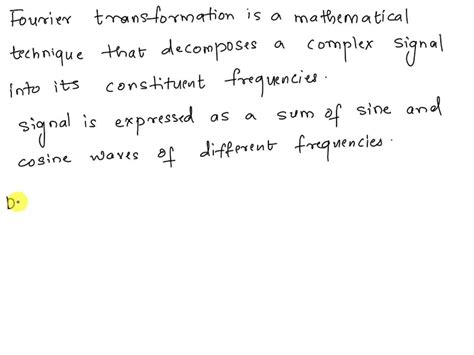 Fourier transformation is a mathematical
technique that decomposes a complex signal
into its constituent frequencies.
signal is expressed as a sum of sine and
cosine waves of different frequencies.
D.